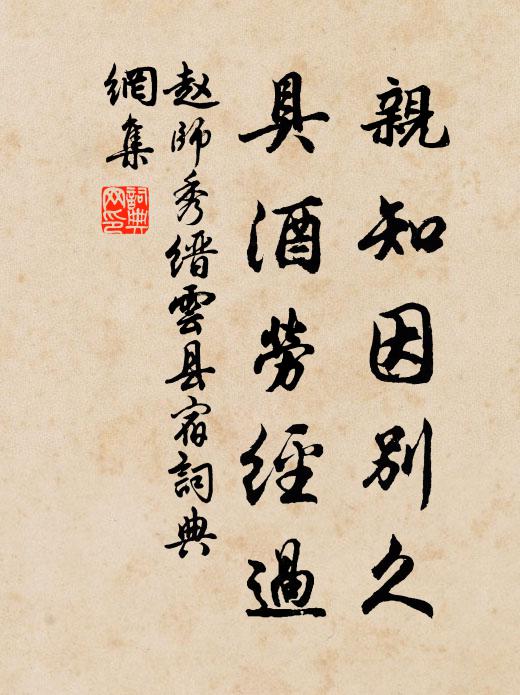 親知因別久
具酒勞經過
赵師秀缙雲县宿詞典
網集
詞典
网印